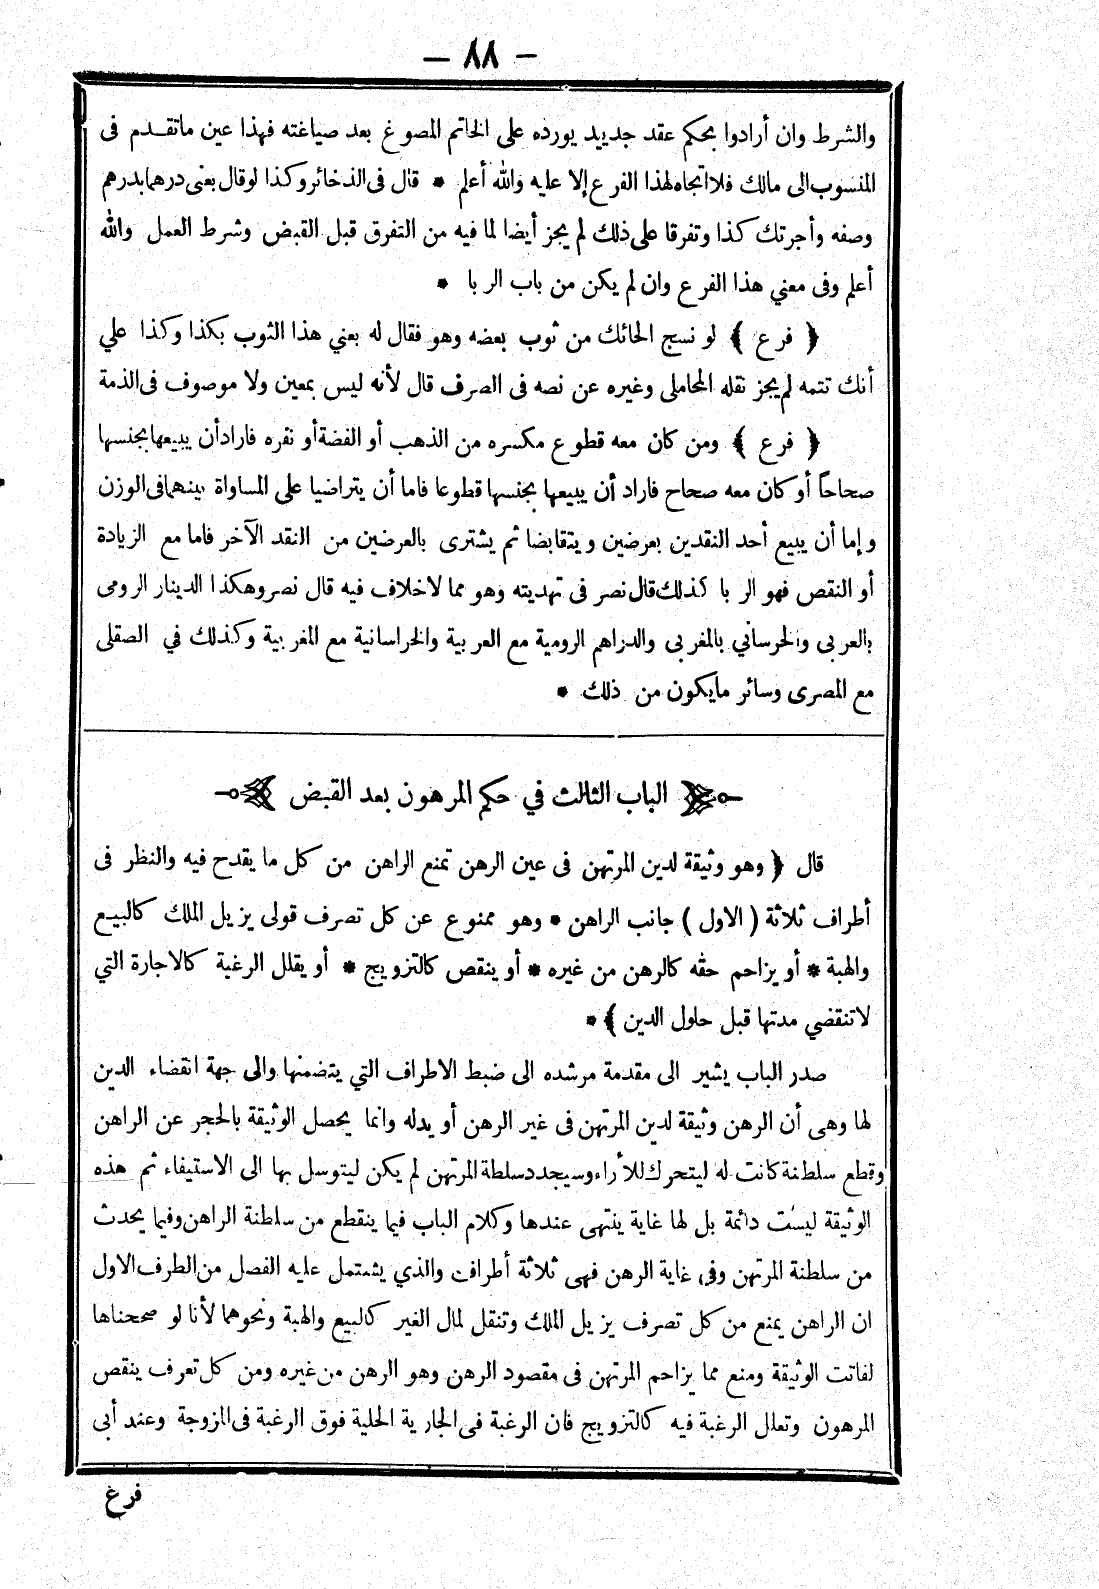 - ٨٨ -
والشرط وان أرادوا بحكم عقد جديد يورده على الخاتم المصوغ بعد صياغته فهذا عين ماتقدم فى
المنسوب الى مالك فلا اتجاه لهذا الفرع إلا عليه والله أعلم * قال فى الذخائر وكذا لو قال بعنى درهما بدرهم
وصفه وأجرتك كذا وتفرقا على ذلك لم يجز أيضا لما فيه من التفرق قبل القبض وشرط العمل والله
أعلم وفى معني هذا الفرع وان لم يكن من باب الربا *
﴿ فرع ﴾ لو نسج الحائك من ثوب بعضه وهو فقال له بعني هذا الثوب بكذا وكذا علي
أنك تتمه لم يجز نقله المحاملى وغيره عن نصه فى الصرف قال لأنه ليس بمعين ولا موصوف فى الذمة
﴿ فرع ﴾ ومن كان معه قطوع مكسره من الذهب أو الفضة أو نقره فاراد أن يبيعها بجنسها
صحاحاً أو كان معه صحاح فاراد أن يبيعها بجنسها قطوعا فاما أن يتراضيا على المساواة بينهما فى الوزن
وإما أن يبيع أحد النقدين بعرضين ويتقابضا ثم يشترى بالعرضين من النقد الآخر فاما مع الزيادة
أو النقص فهو الربا كذلك قال نصر فى تهديته وهو مما لاخلاف فيه قال نصر وهكذا الدينار الرومى
بالعربى والخرساني بالمغربى والدراهم الرومية مع العربية والخراسانية مع المغربية وكذلك في الصقلى
مع المصرى وسائر مايكون من ذلك *
الباب الثالث في حكم المرهون بعد القبض
قال ﴿ وهو وثيقة لدين المرتهن فى عين الرهن تمنع الراهن من كل ما يقدح فيه والنظر فى
أطراف ثلاثة ( الاول ) جانب الراهن * وهو ممنوع عن كل تصرف قولى يزيل الملك كالبيع
والهبة * أو يزاحم حقه كالرهن من غيره * أو ينقص كالتزويج * أو يقلل الرغبة كالاجارة التي
لا تنقضي مدتها قبل حلول الدين ﴾ *
صدر الباب يشير الى مقدمة مرشده الى ضبط الاطراف التي يتضمنها والى جهة انقضاء الدين
لها وهى أن الرهن وثيقة لدين المرتهن فى غير الرهن أو بدله وانما يحصل الوثيقة بالحجر عن الراهن
وقطع سلطنة كانت له ليتحرك للأراء وسيجدد سلطة المرتهن لم يكن ليتوسل بها الى الاستيفاء ثم هذه
الوثيقة ليست دائمة بل لها غاية ينتهى عندها وكلام الباب فيما ينقطع من سلطنة الراهن وفيما يحدث
من سلطنة المرتهن وفى غاية الرهن فهى ثلاثة أطراف والذي يشتمل عليه الفصل من الطرف الاول
ان الراهن يمنع من كل تصرف يزيل الملك وتنقل لمال الغير كالبيع والهبة ونحوهما لأنا لو صححناها
لفاتت الوثيقة ومنع مما يزاحم المرتهن فى مقصود الرهن وهو الرهن من غيره ومن كل تعرف ينقص
المرهون وتعلل الرغبة فيه كالتزويج فان الرغبة فى الجارية الخلية فوق الرغبة فى المزوجة وعند أبى
فرغ